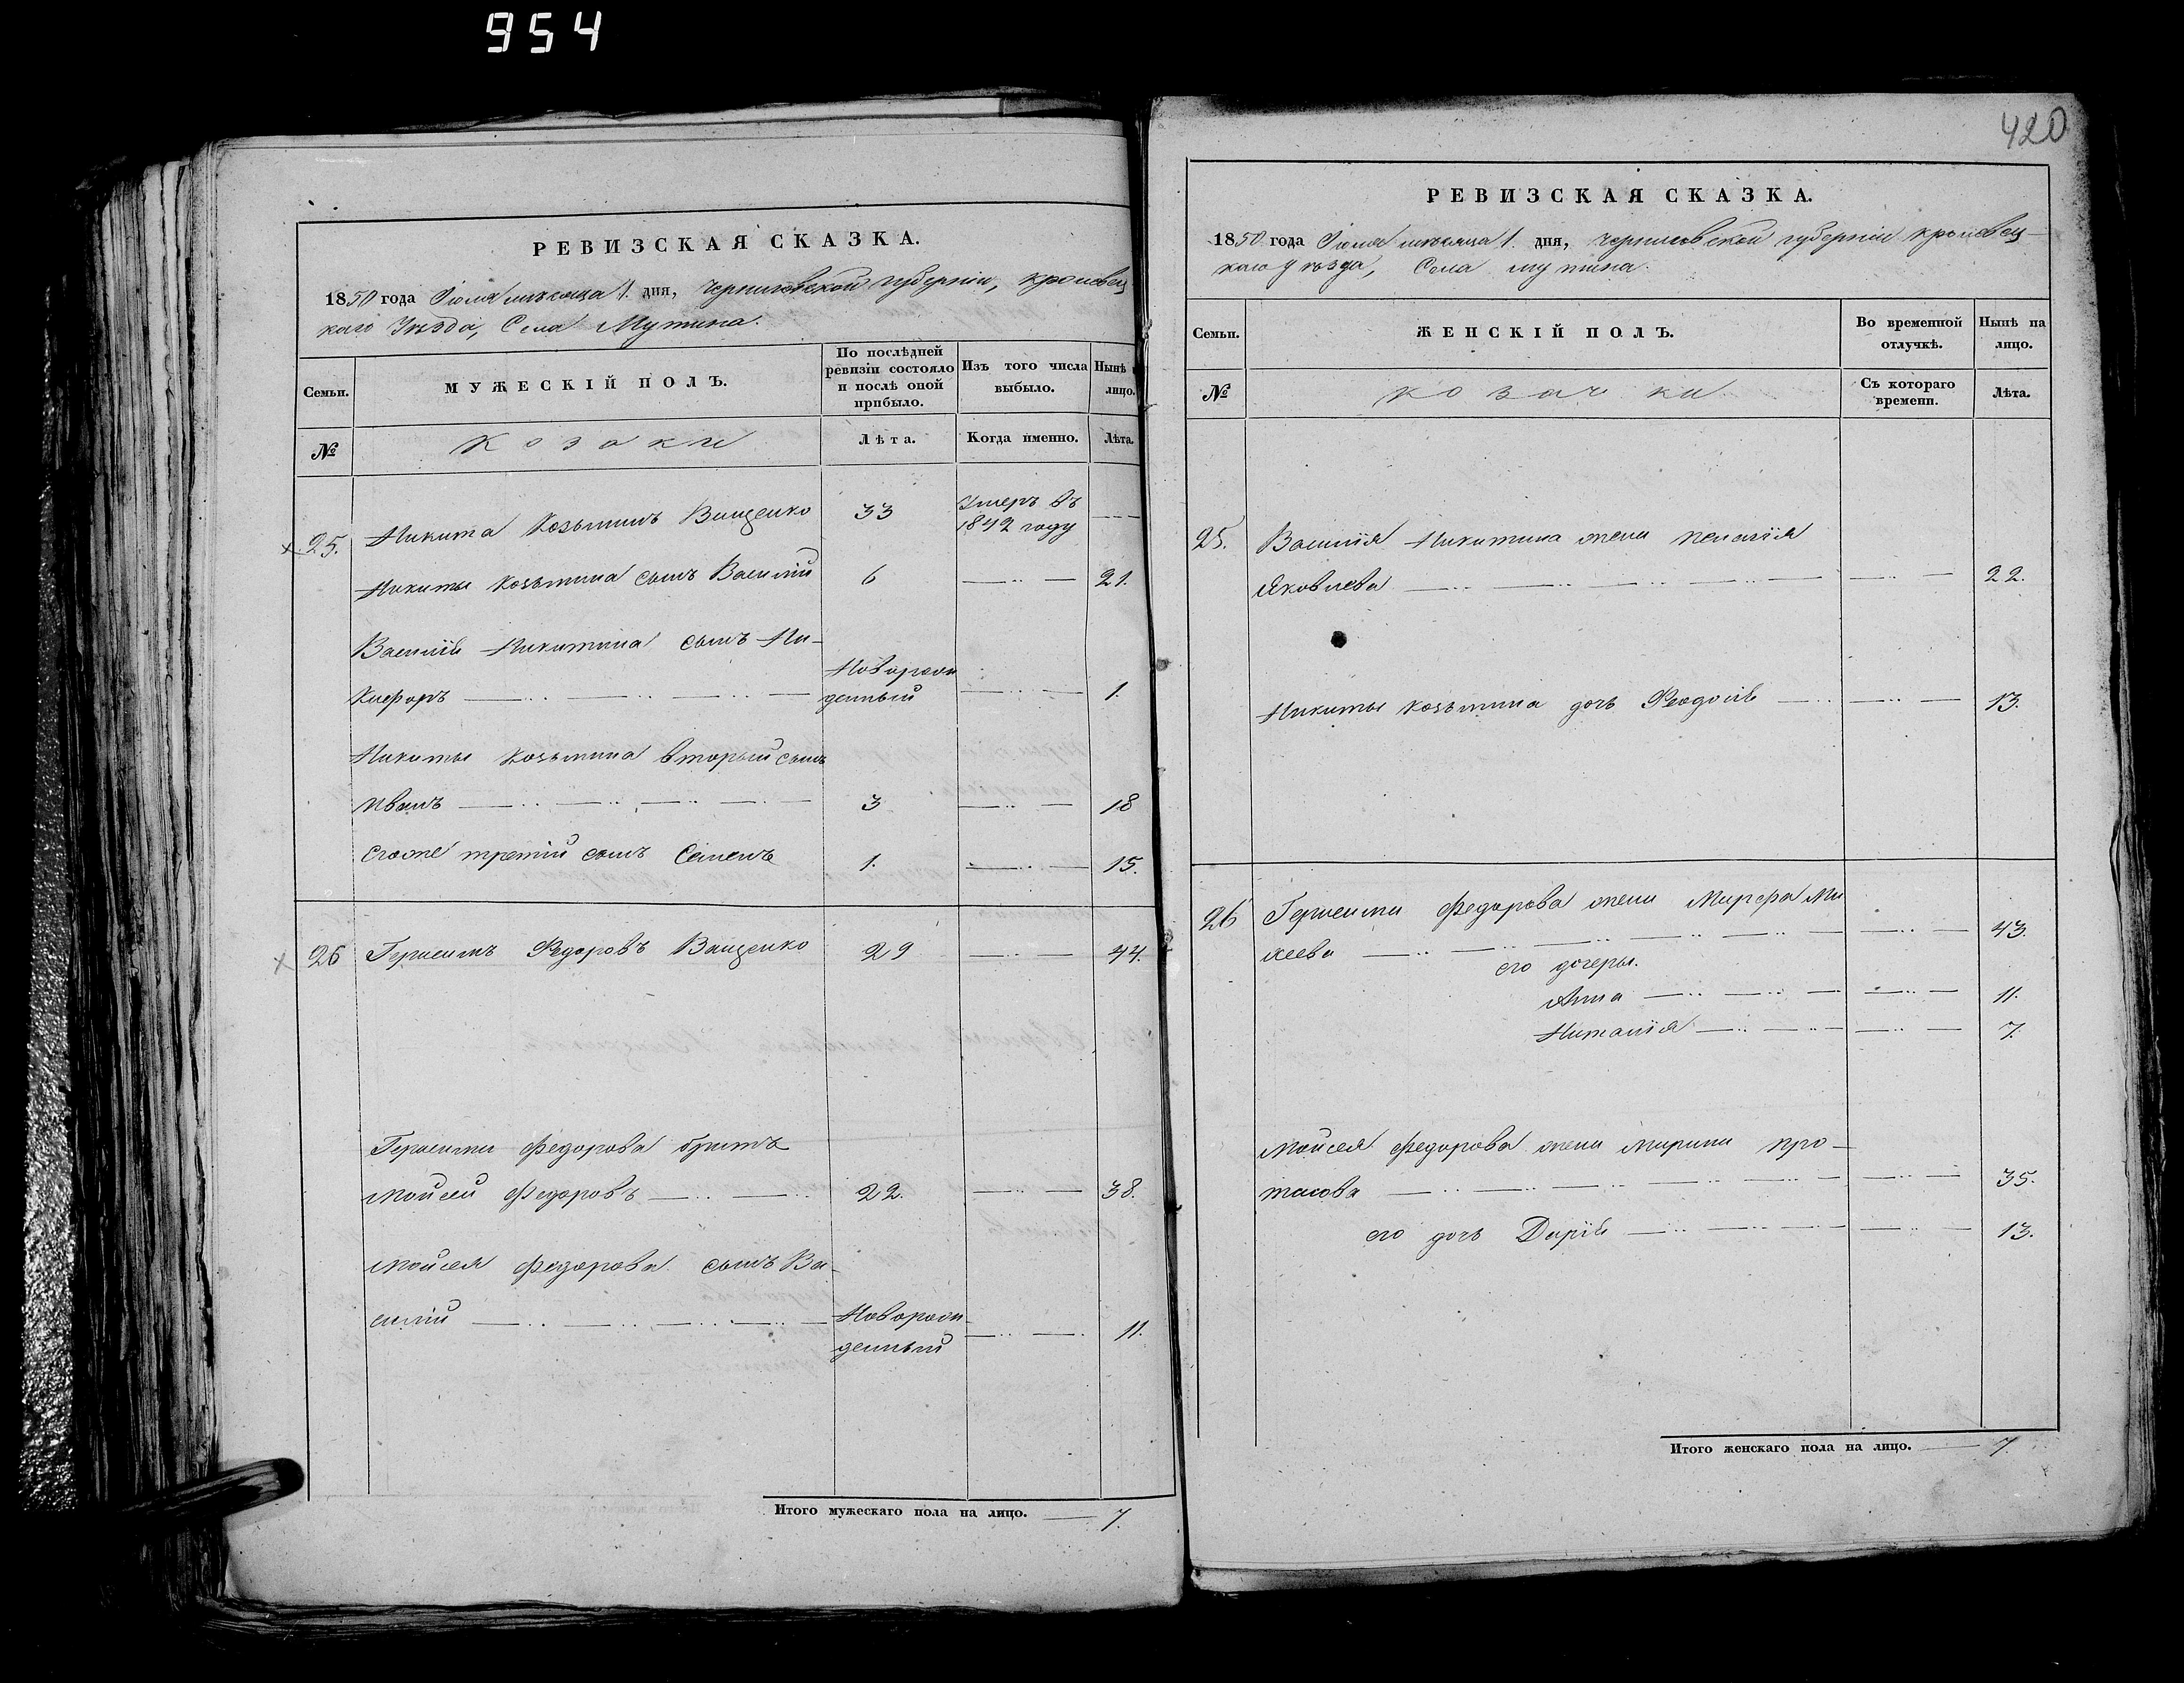 954
РЕВИЗСКАЯ СКАЗКА.
1850 года Июля месяца 1. дня, Черниговской губерніи, Кролевец
каго Уѣзда, Села Мутина.
Семьи.
МУЖЕСКІЙ ПОЛЪ.
По послѣдней
ревизіи состояло
и послѣ оной
прибыло.
Изъ того числа
выбыло.
Нынѣ
лицо.
№
Козаки
Лѣта.
Когда именно.
Лѣта.
25. Никита Козьминъ Ващенко 33 Умеръ въ
1842 году
Никиты Козьмина сынъ Василій 6 21.
Василія Никитина сынъ Ни-
кифоръ Новорож
денный 1.
Никиты Козьмина вторый сынъ
Иванъ 3 18
Егоже третій сынъ Семенъ 1. 15.
26 Герасимъ Федоровъ Ващенко 29 44.
Герасима Федорова братъ
Мойсей Федоровъ 22. 38.
Мойсея Федорова сынъ Ва-
силій Новорож-
денный 11.
Итого мужескаго пола на лицо. 7.
420
РЕВИЗСКАЯ СКАЗКА.
1850 года Июля месяца 1. дня, Черниговской губерніи Кролевец-
каго уѣзда, Села Мутина.
Семьи.
ЖЕНСКІЙ ПОЛЪ.
Во временной
отлучкѣ.
Нынѣ на
лицо.
№
Козачки
Съ котораго
времени.
Лѣта.
25. Василія Никитина жена Пелагія
Яковлева 22.
Никиты Козьмина дочь Феодосія 13.
26 Герасима Федорова жена Марфа Ми
хеева 43.
его дочеры.
Анна 11.
Наталія 7.
Мойсея Федорова жена Марина Про-
тасова 35.
его дочь Дарія 13.
Итого женскаго пола на лицо. 7.